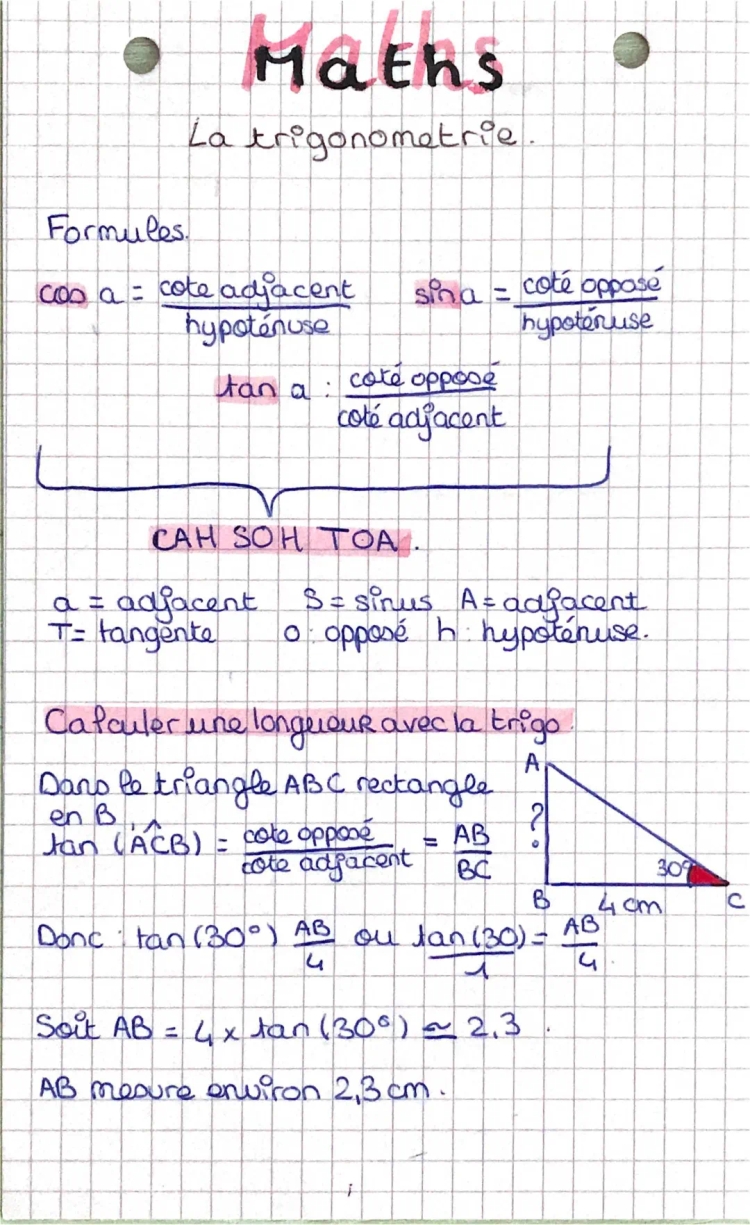 Maths
La trigonometrie.
Formules.
cos a = cote adjacent / hypoténuse   sin a = coté opposé / hypoténuse
tan a : coté opposé / coté adjacent
CAH SOH TOA.
a = adjacent   S = sinus   A = adjacent
T = tangente   o : opposé   h : hypoténuse.
Calculer une longueur avec la trigo.
Dans le triangle ABC rectangle
en B.
tan (AĈB) = cote opposé / cote adjacent = AB / BC
A
?
30°
B   4 cm   C
Donc : tan(30°) AB / 4 ou tan(30) / 1 = AB / 4
Soit AB = 4 x tan(30°) ≃ 2,3.
AB mesure environ 2,3 cm.